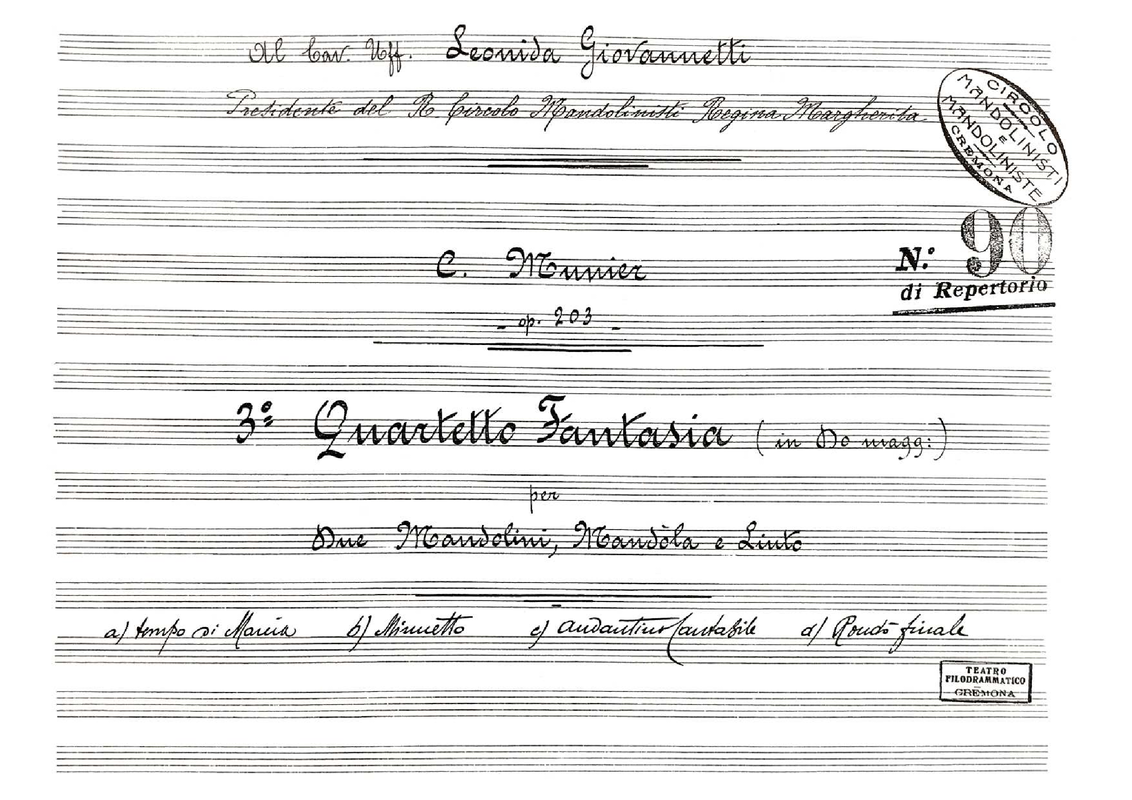 Al Cav. Uff. Leonida Giovannetti
Presidente del R. Circolo Mandolinisti Regina Margherita
CIRCOLO
MANDOLINISTI
E
MANDOLINISTE
CREMONA
N.º 90
di Repertorio
C. Munier
- op. 203 -
3º Quartetto Fantasia (in Do magg:)
per
Due Mandolini, Mandòla e Liuto
a) tempo di Marcia b) Minuetto c) Andantino Cantabile d) Rondò finale
TEATRO
FILODRAMMATICO
CREMONA